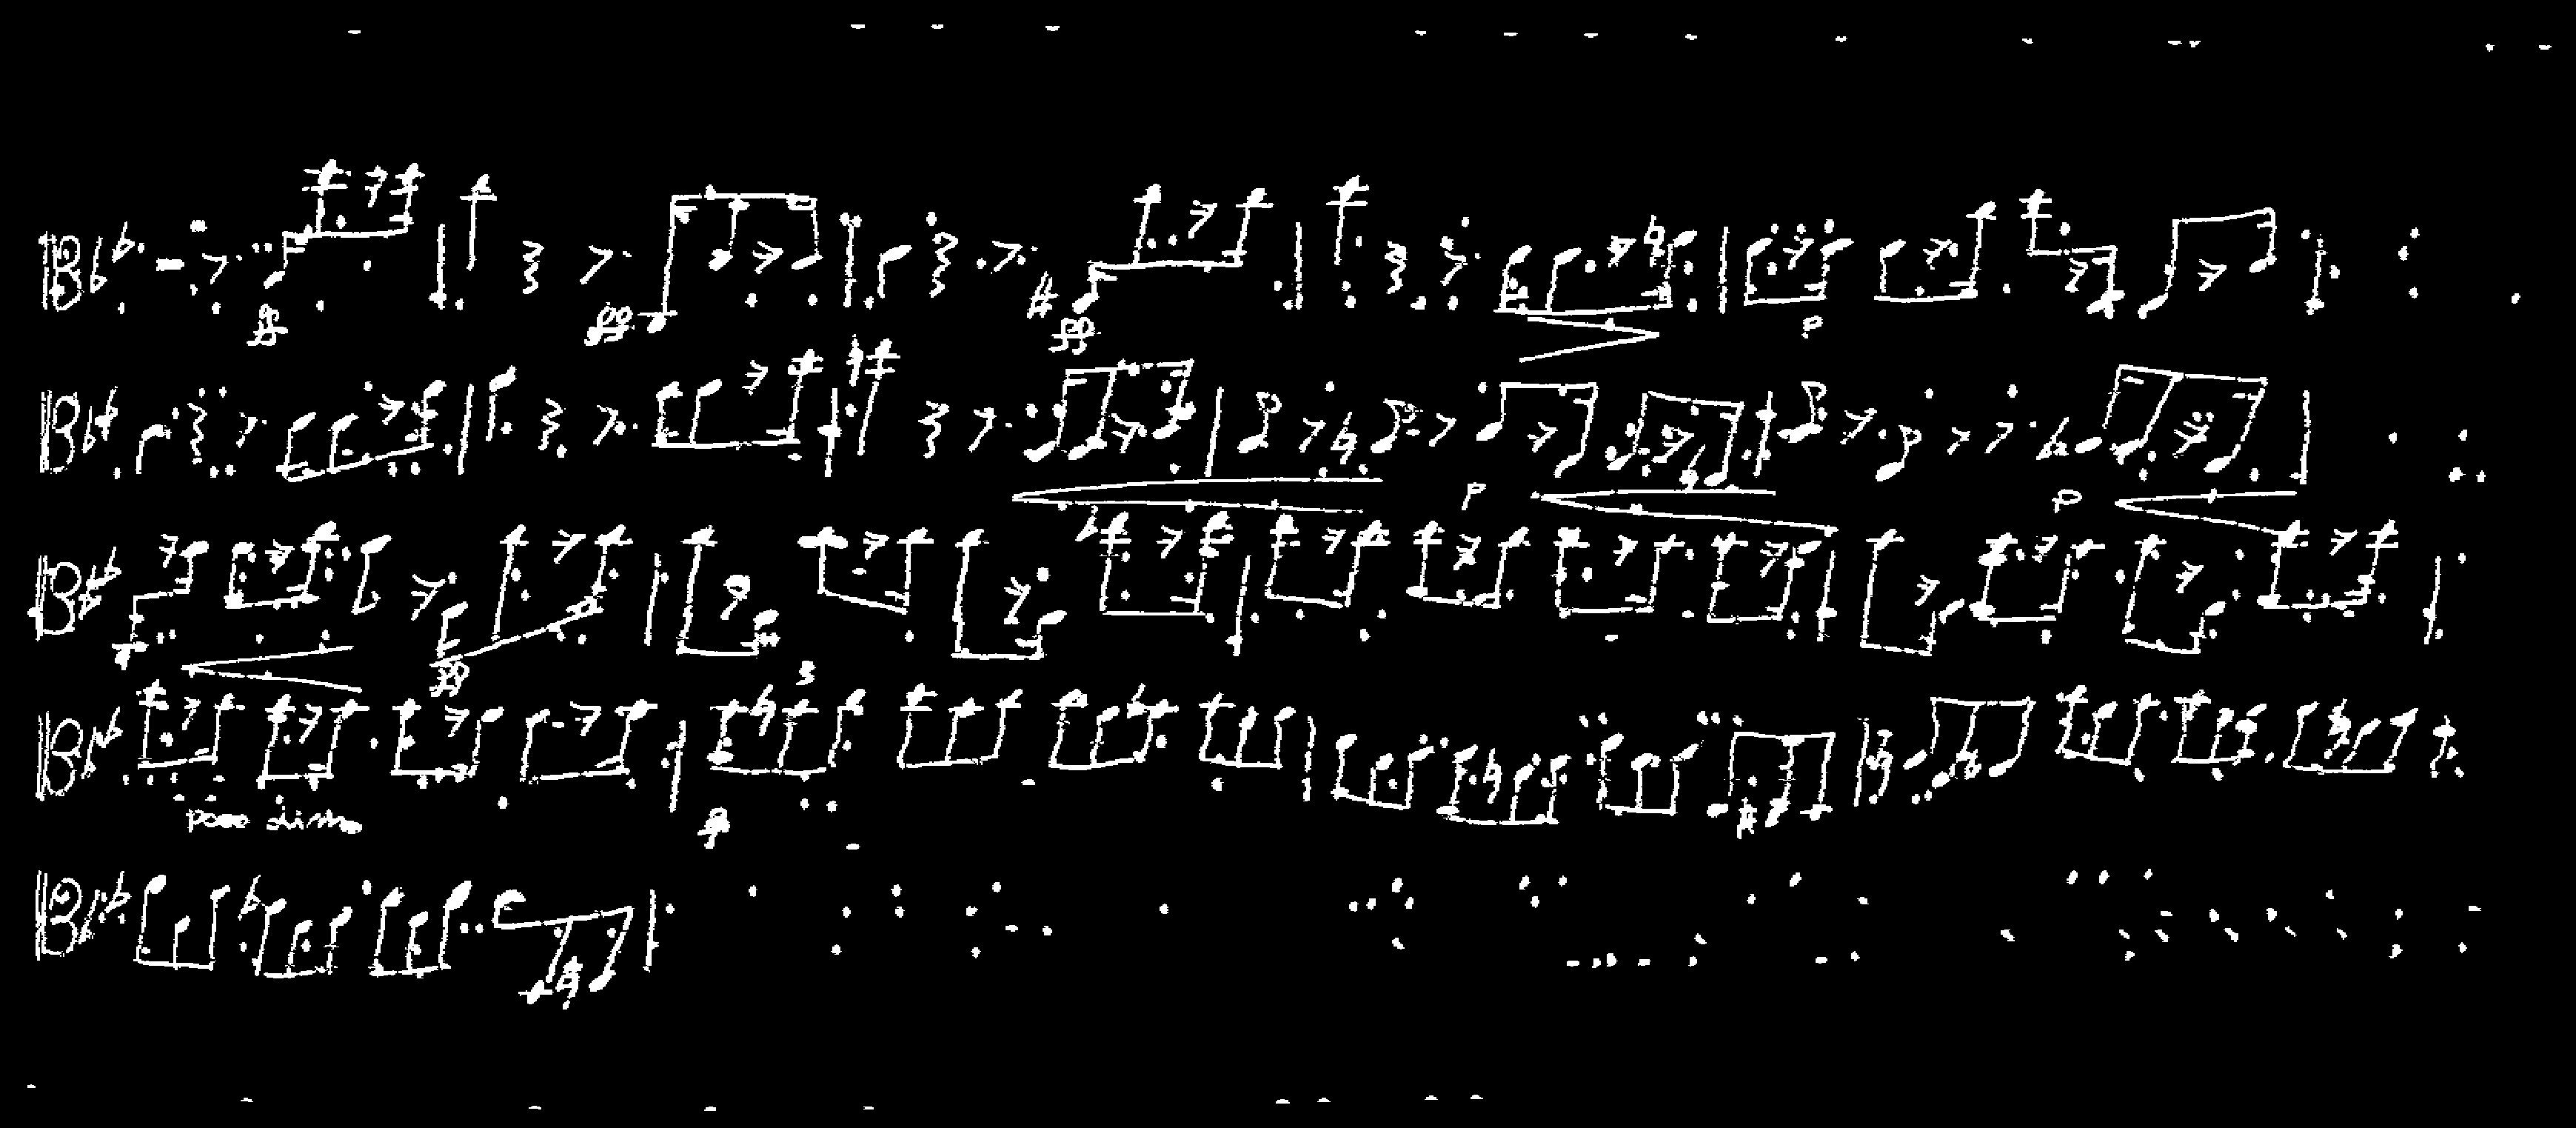 ff ff ff p
p p
ff 3
poco dim
p